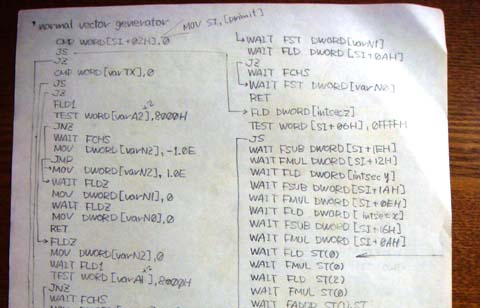 'normal vector generator
MOV SI,[primit]
CMP WORD[SI+02H],0
JS
JZ
CMP WORD[varTX],0
JS
JZ
FLD1
TEST WORD[varA2],8000H
JNZ
WAIT FCHS
MOV DWORD[varN2],-1.0E
JMP
MOV DWORD[varN2], 1.0E
WAIT FLDZ
MOV DWORD[varN1],0
WAIT FLDZ
MOV DWORD[varN0],0
RET
FLDZ
MOV DWORD[varN2],0
WAIT FLD1
TEST WORD[varA1],8000H
JNZ
WAIT FCHS
WAIT FST DWORD[varN1]
WAIT FLD DWORD[SI+0AH]
JZ
WAIT FCHS
WAIT FST DWORD[varN0]
RET
FLD DWORD[intsecz]
TEST WORD[SI+06H], 0FFFFH
JS
WAIT FSUB DWORD[SI+1EH]
WAIT FMUL DWORD[SI+12H]
WAIT FLD DWORD[intsecy]
WAIT FSUB DWORD[SI+1AH]
WAIT FMUL DWORD[SI+0EH]
WAIT FLD DWORD[intsecx]
WAIT FSUB DWORD[SI+16H]
WAIT FMUL DWORD[SI+0AH]
WAIT FLD ST(0)
WAIT FMUL ST(0)
WAIT FLD ST(2)
WAIT FMUL ST(0)
WAIT FADDP ST(1),ST